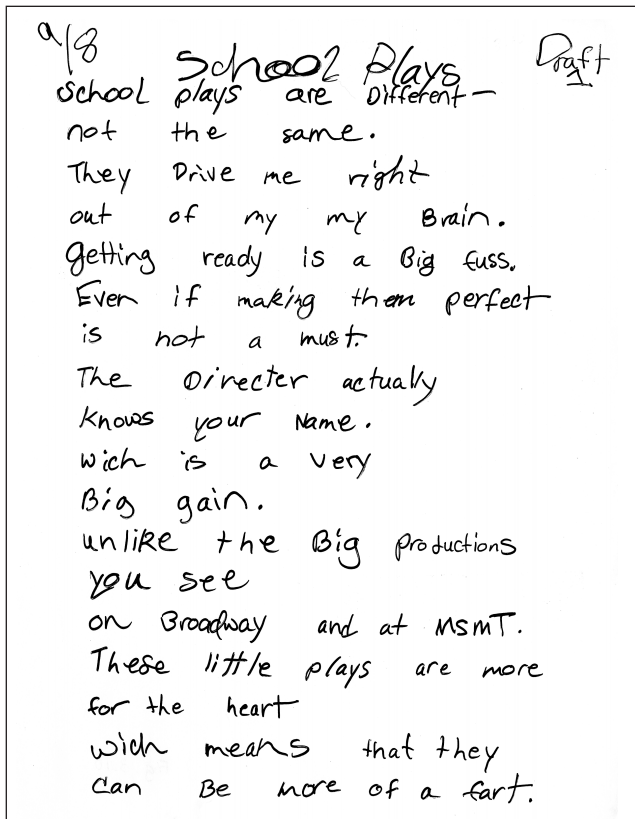 9/8
School Plays
Draft 1
School plays are Different—
not the same.
They Drive me right
out of my my Brain.
getting ready is a Big fuss.
Even if making them perfect
is not a must.
The Directer actually
knows your Name.
wich is a very
Big gain.
unlike the Big productions
you see
on Broadway and at MSMT.
These little plays are more
for the heart
wich means that they
can Be more of a fart.